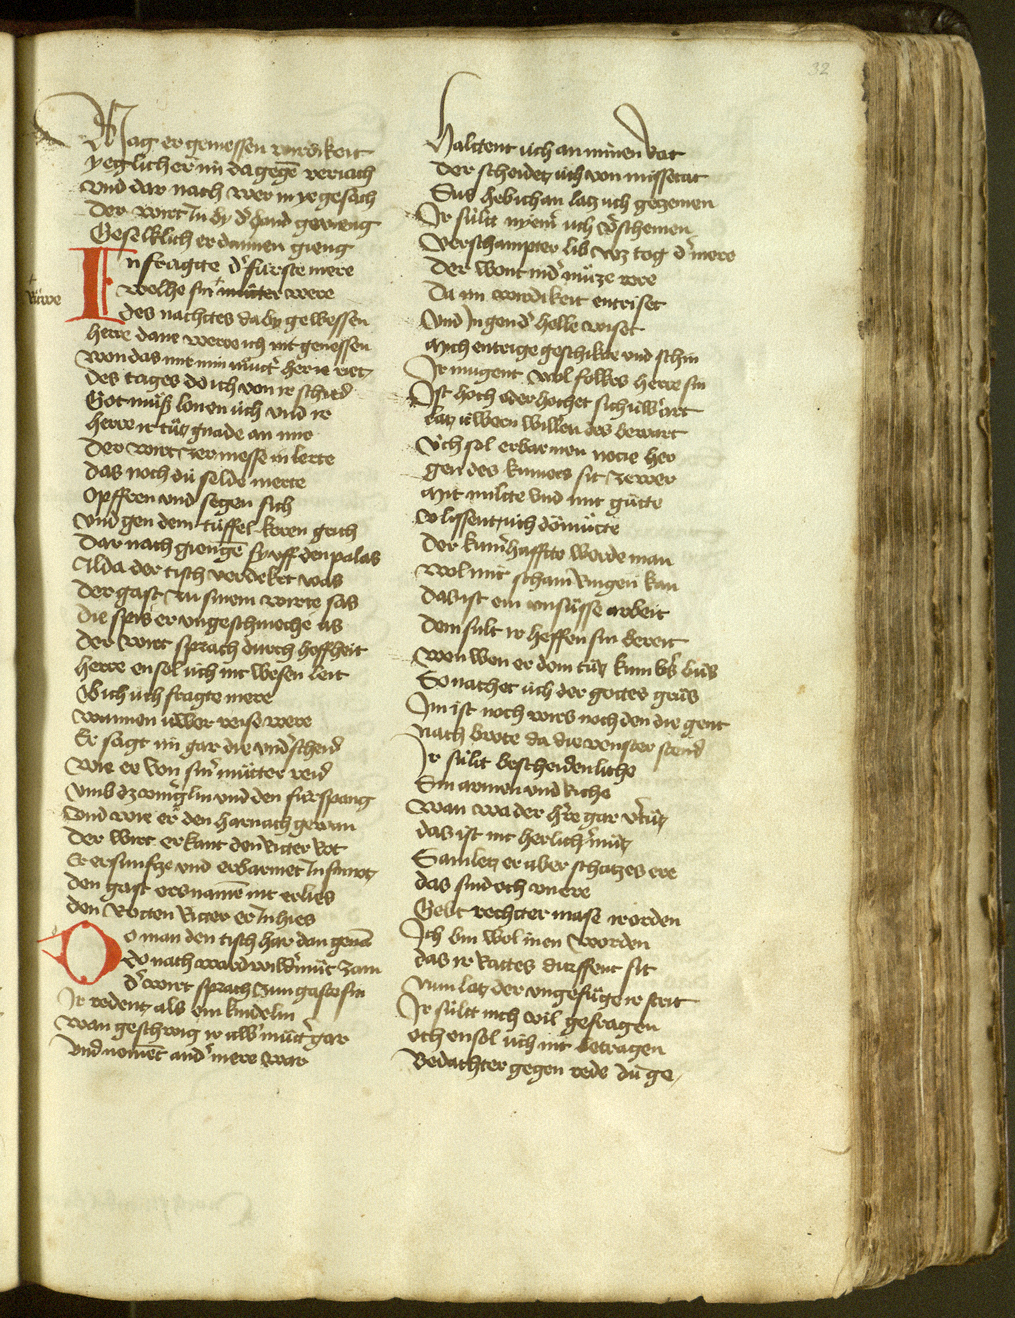 32
Mag er geniessen wirdikeit
yeglicher im da gegē veriach
vnd dar nach wer in ye gesach
Der wirt in by d' hand gevieng
Geselklich er dannen gieng
In fragte d' fürste mere
welhe sin mütter were
růwe
des nachtes da by gewessen
herre dane were ich nit genessen
won das mit min můt' her in riet
des tages do ich von ir schied
Got můß lonen üch vnd ir
herre ir tůtz gnade an mir
Der wirt zer messe in lerte
das noch dü selde merte
Opfferen vnd segen sich
vnd gen dem tüffel keren gerich
Dar nach giengē sy vff den palas
Alda der tisch verdeket was
Der gast zu sinem wirte sas
die spis er vngeschmeche as
der wirt sprach durch hoffheit
herre en sol üch nit wesen leit
Ob ich üch fragte mere
wannen üwer reise were
Er sagt im gar die vnd'scheid
wie er von sin' mütter reid
vmb dz vving'lin vnd den fürspang
vnd wie er den harnach gewan
der wirt erkant den Ritter Rot
Er ersünfzte vnd erbarmet in sin not
den gast des namē nit erlies
den Rotten Ritter er in hies
Do man den tisch har dan genā
do nach ward wild' můt zam
d' wirt sprach zum gaste sin
Ir redentz als ein kindelin
wan geschwig ir üw' můtt' gar
vnd nemēt and' mere war
Haltent üch an minen Rat
der scheidet üch von missetat
Sus heb ich an latz üch gezemen
Ir sůlit nyem' üch v'schemen
verschampter lib woz tog d' mere
der wont in d' müze rere
Da im wirdikeit entriset
vnd in gend' helle wiset
Mich entrige geschikde vnd schin
Ir mugent wol folkes herre sin
Ist hoch oder hochet sich üw' art
latz üwern willen des bewart
üch sol erbarmen notie her
gen des kumers sit zewer
Mit milte vnd mit gütte
vlissent üch dömütte
Der kumb'haffte werde man
wol mit scham Ringen kan
das ist ein vnsüsse arbeit
dem sult ir helffen sin bereit
wen wen er dem tůtz kumb's bůs
So nachet üch der gottes grůs
Im ist noch wirs noch den die gent
nach brote da die venster stend
Ir sülit bescheidenliche
Sin armen vnd Riche
wan wa der h're gar v'tůtz
das ist nit herlich' můtz
Samletz er aber schatzes ere
das sind och vnere
Gebt rechter mase ir orden
Ich bin wol inen worden
das ir Rattes durffent sit
nun latz der vngefüge ir strit
Ir sültt nich vil gefragen
och en sol üch nit betragen
Bedachter gegen rede dü ge